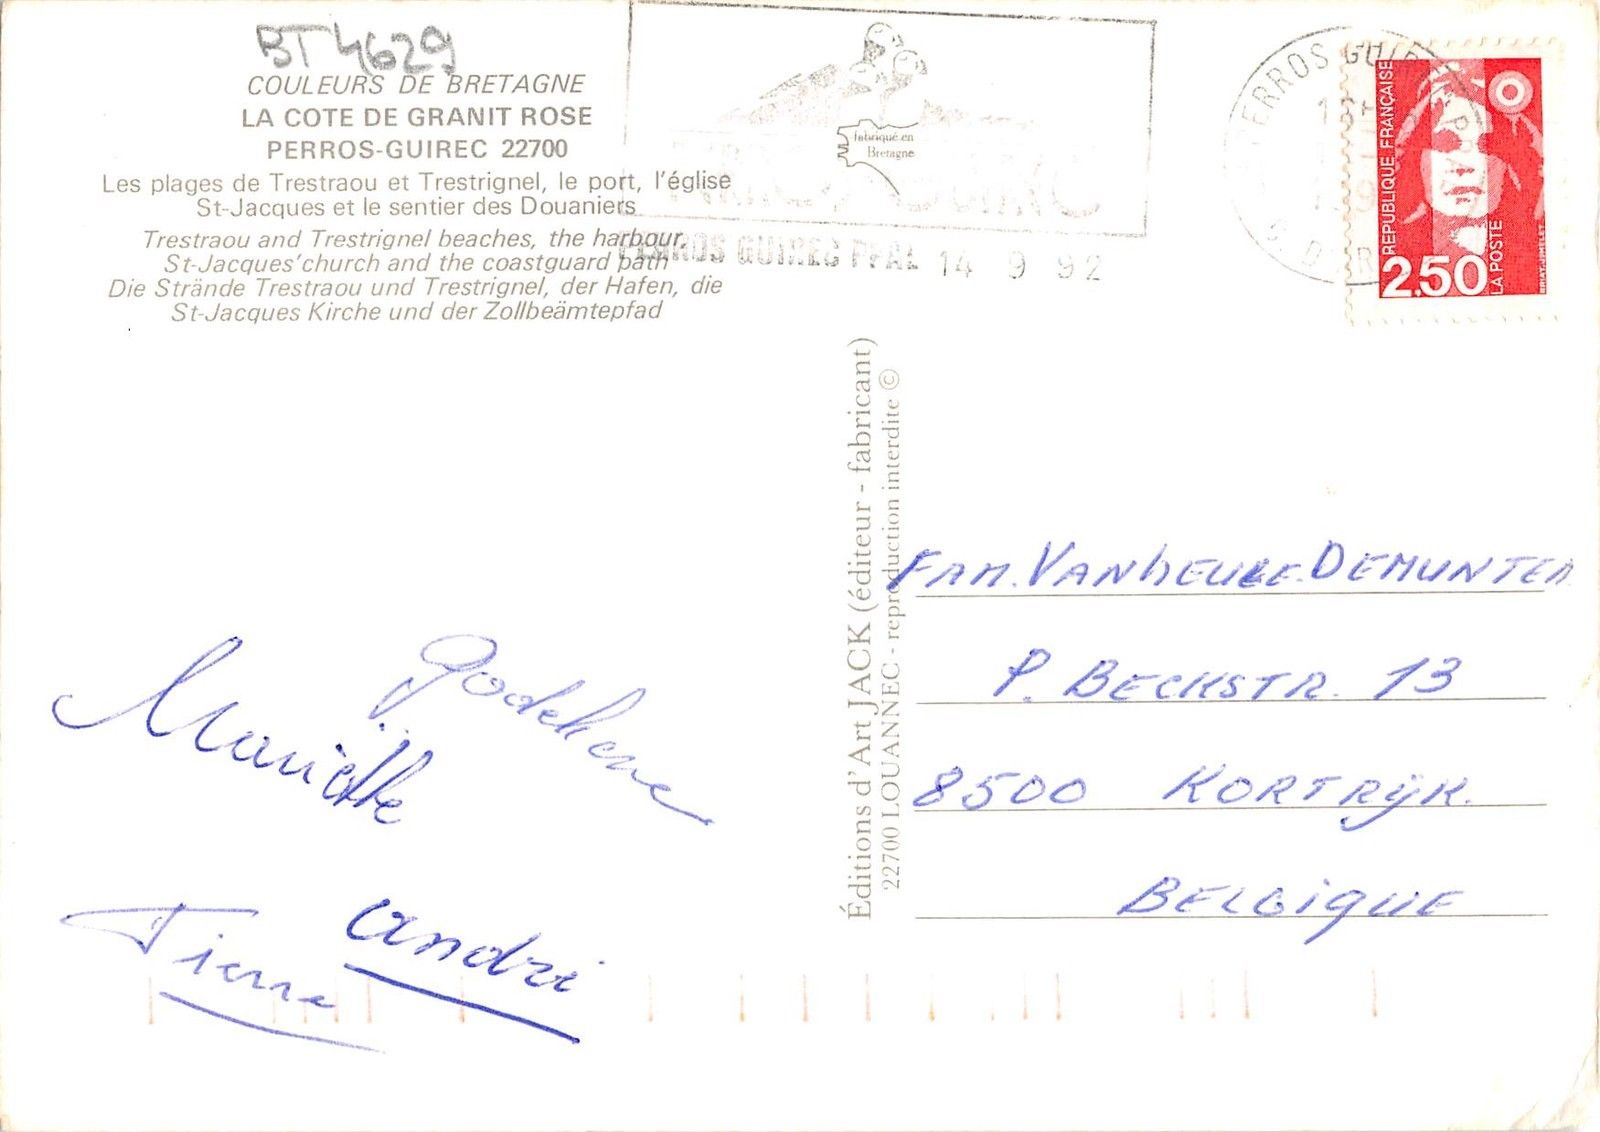 BT4629
COULEURS DE BRETAGNE
LA COTE DE GRANIT ROSE
PERROS-GUIREC 22700
Les plages de Trestraou et Trestrignel, le port, l'église
St-Jacques et le sentier des Douaniers
Trestraou and Trestrignel beaches, the harbour,
St-Jacques'church and the coastguard path
Die Strände Trestraou und Trestrignel, der Hafen, die
St-Jacques Kirche und der Zollbeämtepfad
fabriqué en
Bretagne
PERROS GUIREC PPAL 14 9 92
PERROS GUIREC
REPUBLIQUE FRANÇAISE
2,50
LA POSTE
BRIAT-JUMELET
Éditions d'Art JACK (éditeur - fabricant)
22700 LOUANNEC - reproduction interdite ©
FAM. VANHEULE DEMUNTER
P. BECKSTR. 13
8500 KORTRIJK.
BELGIQUE
Godelieve
Mariette
André
Pierre